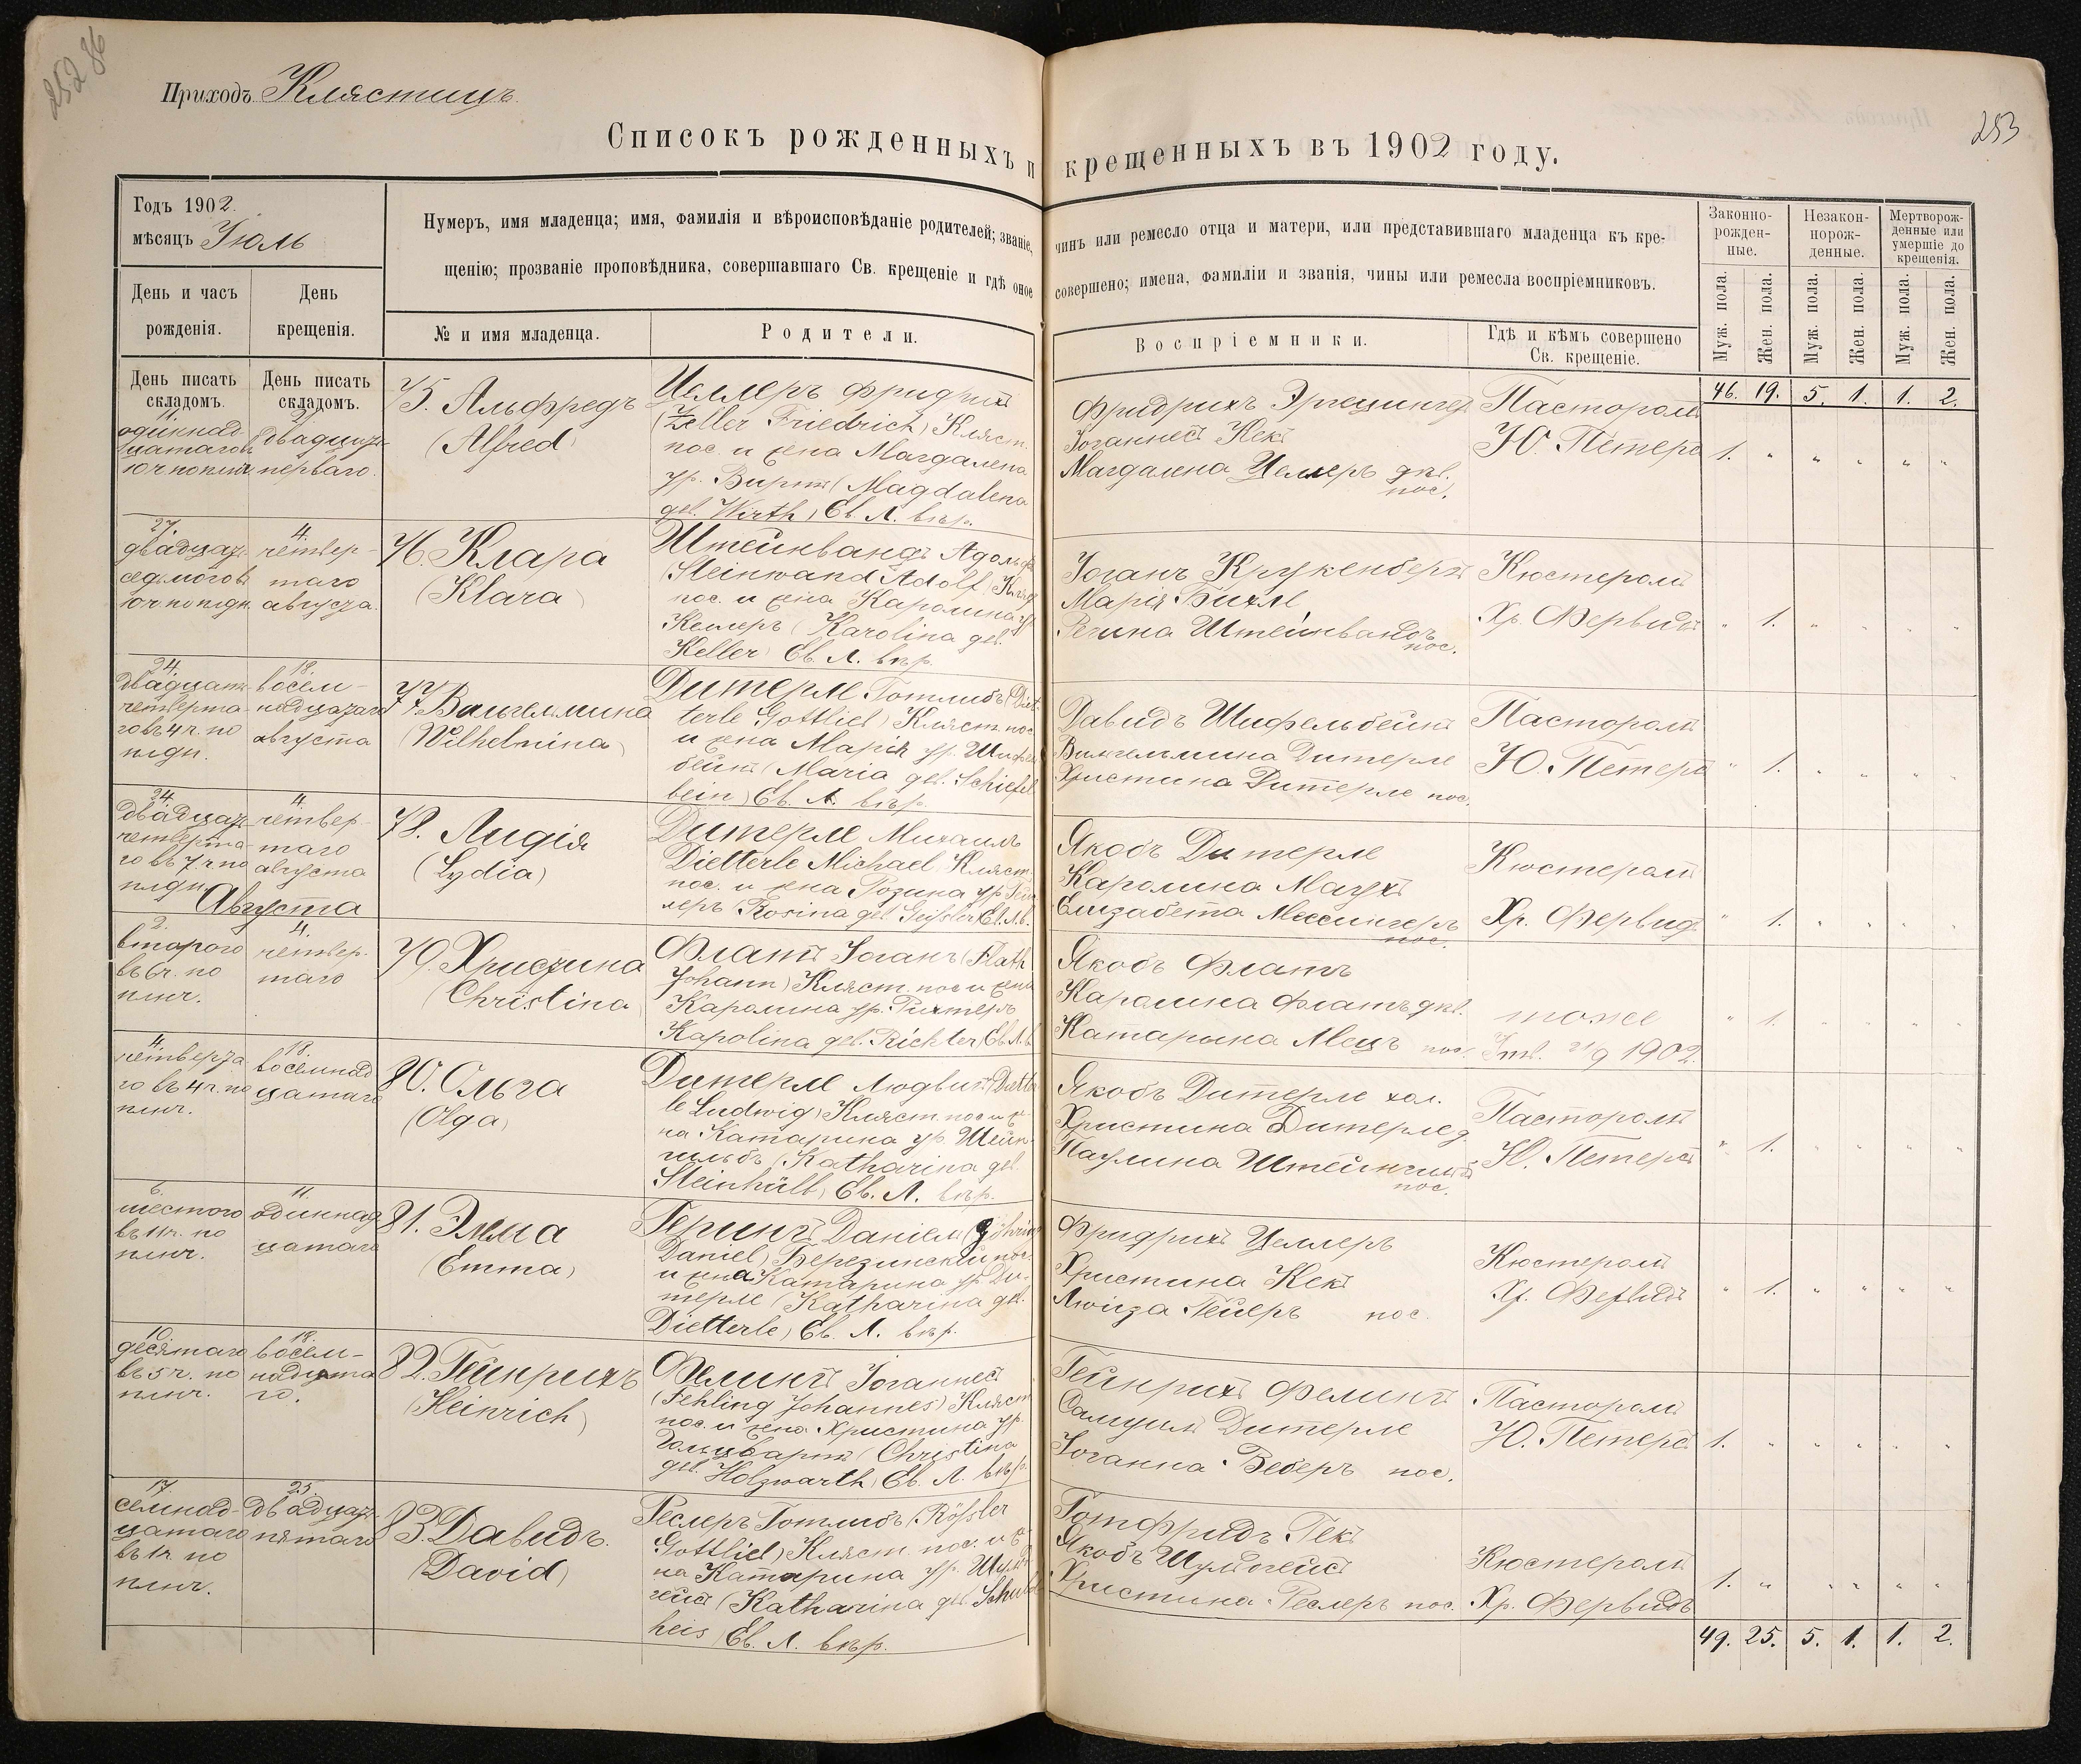 252 86
Приходъ Клястицъ
253
Списокъ рожденныхъ и крещенныхъ въ 1902 году.
Годъ 1902.
мѣсяцъ Іюль
День и часъ рожденія.
День крещенія.
Нумеръ, имя младенца; имя, фамилія и вѣроисповѣданіе родителей; званіе, чинъ или ремесло отца и матери, или представившаго младенца къ кре-
щенію; прозваніе проповѣдника, совершавшаго Св. крещеніе и гдѣ оное совершено; имена, фамиліи и званія, чины или ремесла воспріемниковъ.
№ и имя младенца.
Родители.
Воспріемники.
Гдѣ и кѣмъ совершено
Св. крещеніе.
Законно-
рожден-
ные.
Незакон-
норож-
денные.
Мертворож-
денные или
умершіе до
крещенія.
Муж. пола. Жен. пола. Муж. пола. Жен. пола. Муж. пола. Жен. пола.
День писать
складомъ.
День писать
складомъ.
46. 19. 5. 1. 1. 2.
11.
одиннад-
цатаго въ
10 ч по плдн
21
двадцать
перваго.
75. Альфредъ
(Alfred)
Целлеръ Фридрихъ
(Zeller Friedrich) Кляст.
пос. и жена Магдалена
ур. Виртъ (Magdalena
geb. Wirth) Ев. Л. вѣр.
Фридрихъ
Іоганнесъ Кекъ
Магдалена Целлеръ дѣв.
пос.
Пасторомъ
Ю. Петерсъ
1. " " " " "
27.
двадцать
седьмого въ
10 ч. по плдн.
4.
четвер-
таго
августа.
76. Клара
(Klara)
Штейнвандъ Адольфъ
(Steinwand Adolf) Кляст
пос. и жена Каролина ур
Келлеръ (Karolina geb.
Keller) Ев. Л. вѣр.
Іоганъ Крукенбергъ
Марія Бихль
Регина Штейнвандъ
пос.
Кюстеромъ
Хр. Фервидъ
" 1. " " " "
24.
двадцать
четверта-
го въ 4 ч. по
плдн.
18.
восем-
надцатаго
августа
77. Вильгелмина
(Wilhelmina)
Дитерле Готлибъ (Diet-
terle Gottlieb) Кляст. пос
и жена Марія ур. Шифель
бейнъ (Maria geb. Schiefel
bein) Ев. Л. вѣр.
Давидъ Шифельбейнъ
Вильгельмина Дитерле
Христина Дитерле пос.
Пасторомъ
Ю. Петерсъ
" 1. " " " "
24.
двадцать
четверта-
го въ 7 ч по
плдн
4.
четвер-
таго
августа
78. Лидія
(Lydia)
Дитерле Михаилъ
Dietterle Michael Кляст
пос. и жена Розина ур. Гейс
леръ (Rosina geb Geissler) Ев. Л. в.
Якобъ Дитерле
Каролина
Елизабета Мессингеръ
пос.
Кюстеромъ
Хр. Фервидъ
" 1. " " " "
Августа
2.
второго
въ 6 ч. по
плнч.
4.
четвер-
таго
79. Христина
(Christina
Флатъ Іоганъ (Flath
Johann) Кляст. пос и жена
Каролина ур. Рихтеръ
Karolina geb. Richter) Ев. Л. в.
Якобъ Флатъ
Каролина Флатъ дѣв.
Катарына Мецъ пос.
тоже
21/9 1902.
" 1. " " " "
4.
четверта-
го въ 4 ч. по
плнч.
18.
восемнад
цатаго
80. Ольга
(Olga)
Дитерле Людвигъ (Dietter
le Ludwig) Кляст. пос и же
на Катарина ур. Штейн
гильбъ (Katharina geb.
Steinhülb) Ев. Л. вѣр.
Якобъ Дитерле хол.
Христина Дитерле д.
Паулина Штейнгильбъ
пос.
Пасторомъ
Ю. Петерсъ
" 1. " " " "
6.
шестого
въ 11 ч. по
плнч.
11.
одиннад
цатаго
81. Эмма
(Emma)
Герингъ Даніелъ (Göhring
Daniel) Березинскій пос.
и жена Катарина ур. Ди-
терле (Katharina geb.
Dietterle) Ев. Л. вѣр.
Фридрихъ Целлеръ
Христина Кекъ
Люіза Гейеръ пос.
Кюстеромъ
Хр. Фервидъ
" 1. " " " "
10.
десятаго
въ 5 ч. по
плнч.
18.
восем-
надцата
го.
82. Гейнрихъ
(Heinrich)
Фелингъ Іоганнесъ
(Fehling Johannes) Кляст
пос. и жена Христина ур.
Гольцвартъ (Christina
geb. Holzwarth) Ев. Л. вѣр
Гейнрихъ Фелингъ
Самуилъ Дитерле
Іоганна Веберъ пос.
Пасторомъ
Ю. Петерсъ
1. " " " " "
17.
семнад-
цатаго
въ 1 ч. по
плнч.
25.
двадцать
пятаго
83. Давидъ.
(David)
Реслеръ Готлибъ (Rössler
Gottlieb) Кляст. пос. и же
на Катарина ур. Шульт
гейсъ (Katharina geb. Schult
heis) Ев. Л. вѣр.
Готфридъ Гекъ
Якобъ Шультгейсъ
Христина Реслеръ пос.
Кюстеромъ
Хр. Фервидъ
1. " " " " "
49. 25. 5. 1. 1. 2.